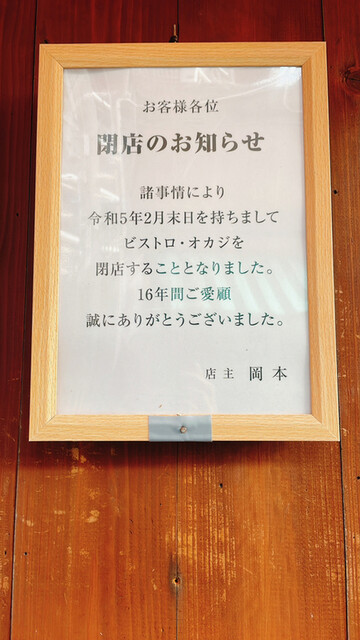 お客様各位
閉店のお知らせ
諸事情により
令和5年2月末日を持ちまして
ビストロ・オカジを
閉店することとなりました。
16年間ご愛顧
誠にありがとうございました。
店主 岡本